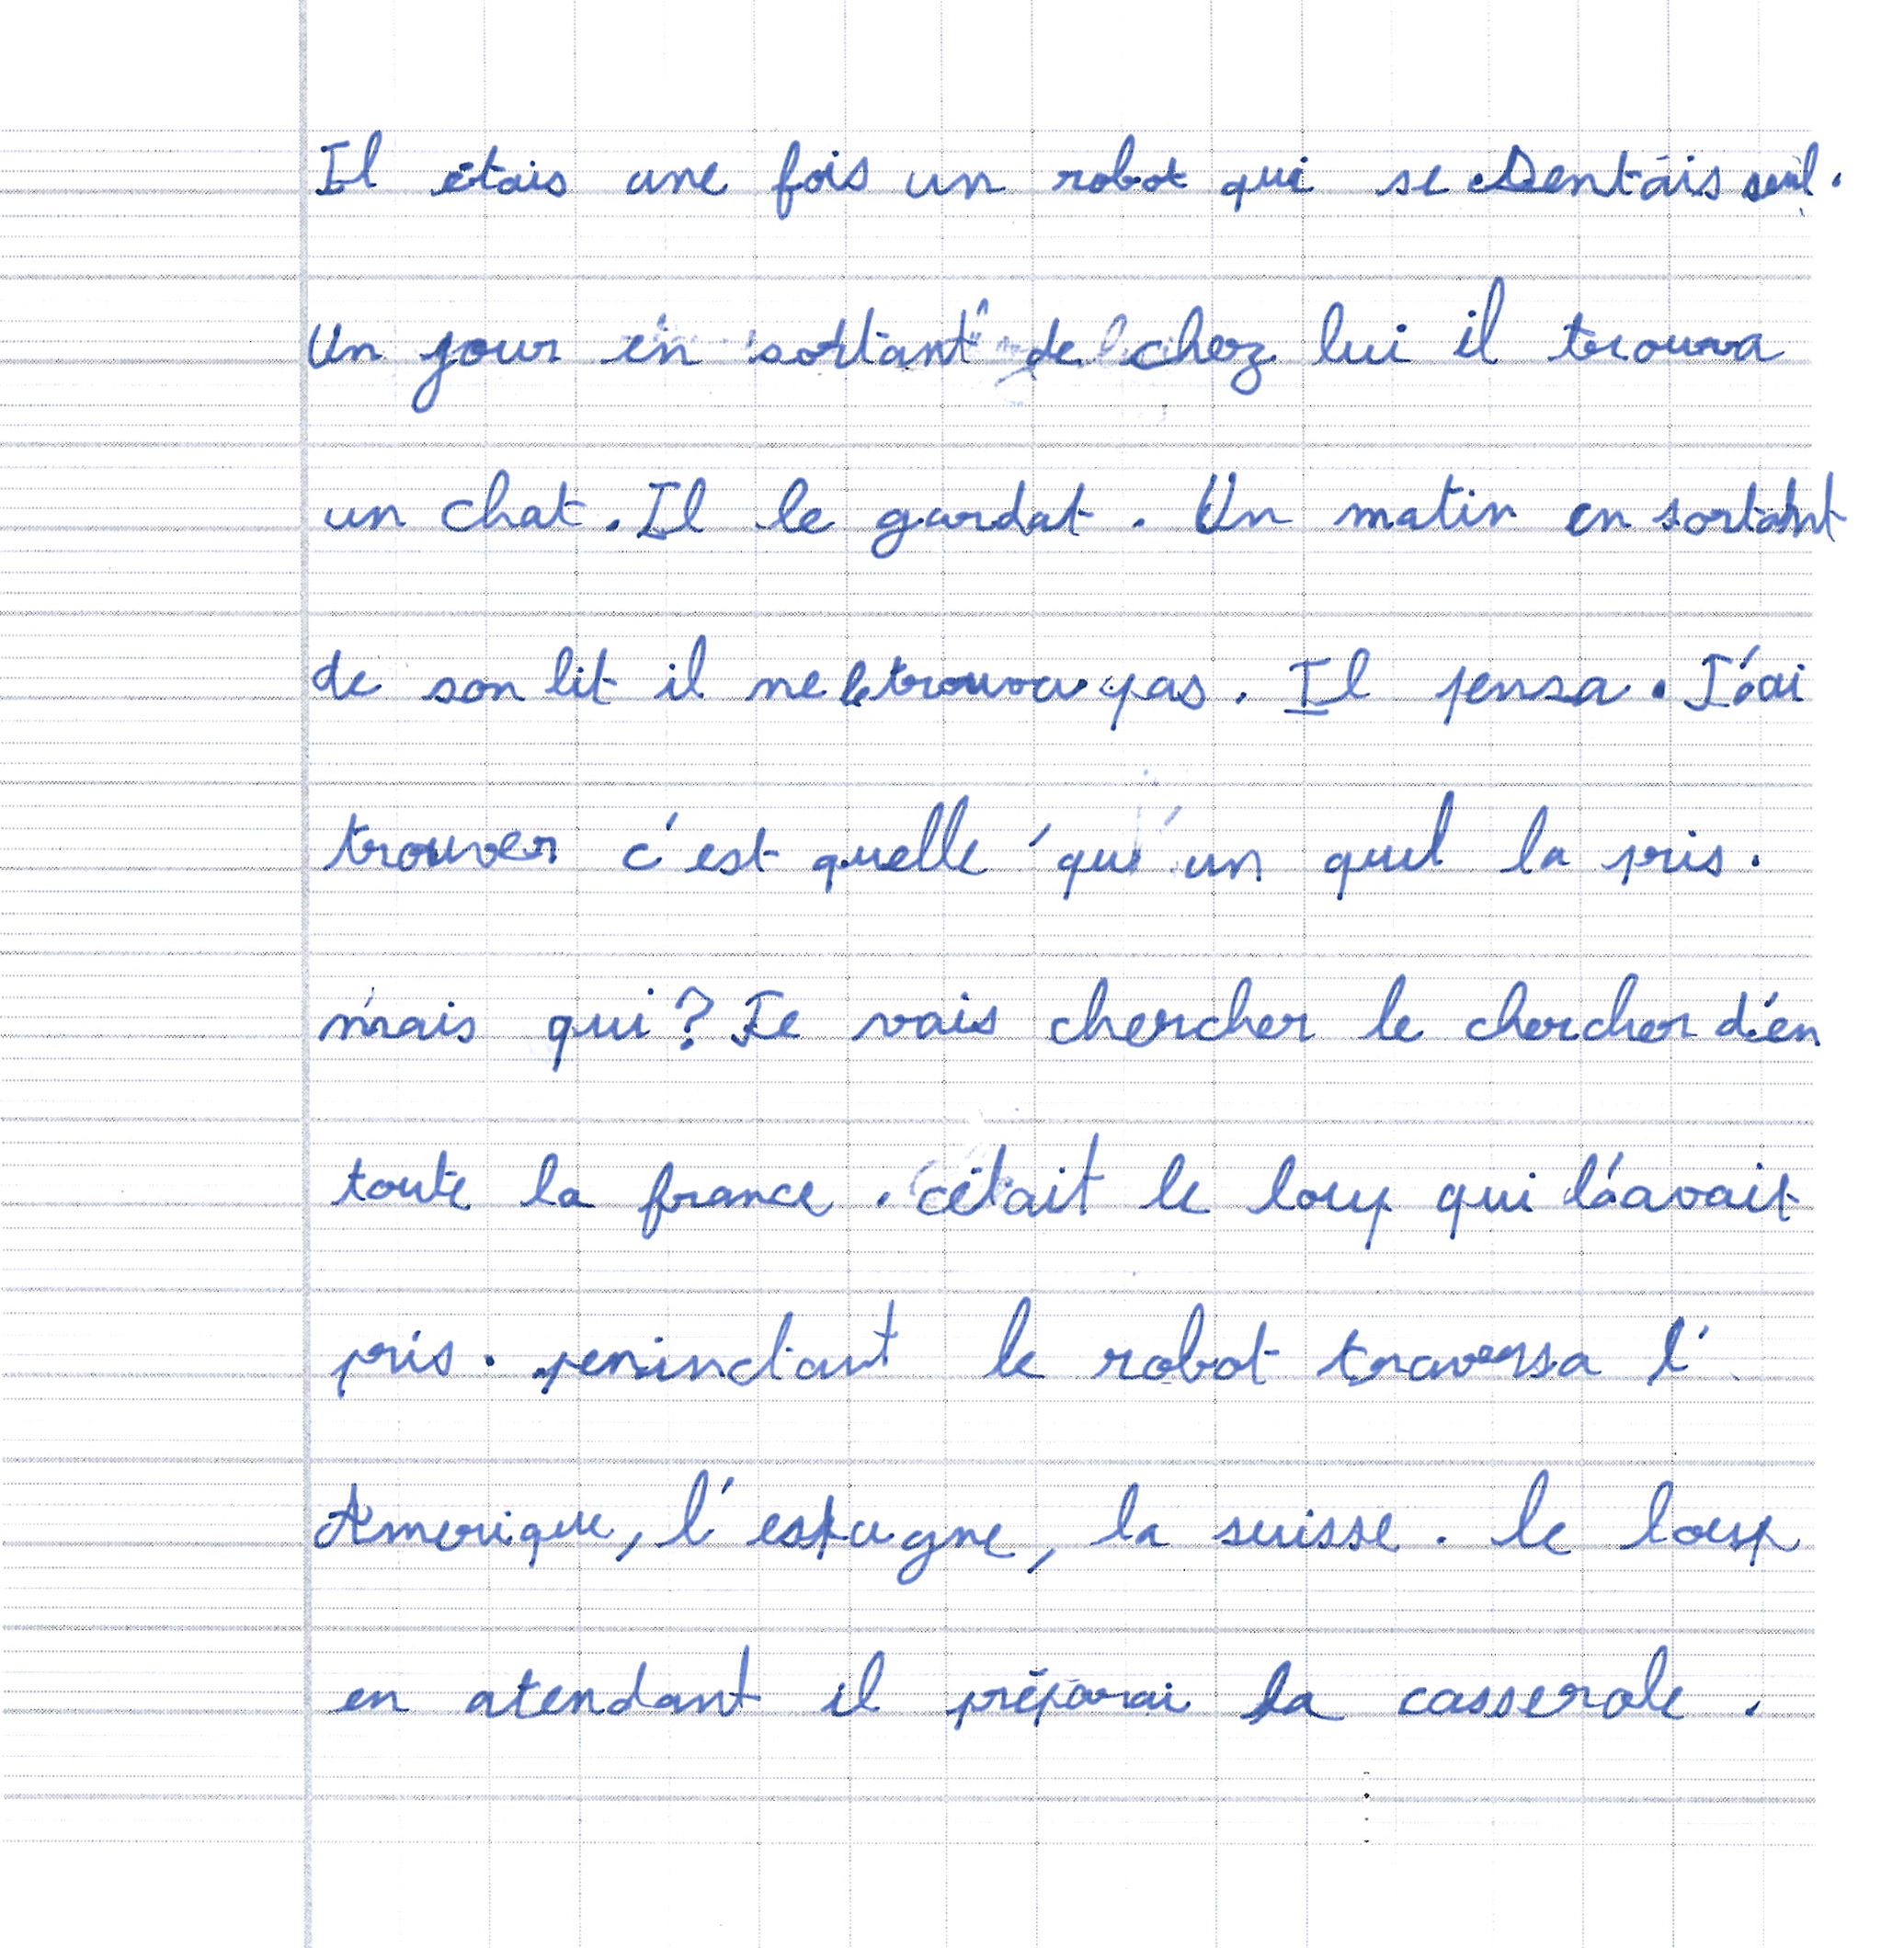 Il étais une fois un robot qui se sentais seul.
Un jour en sortant de chez lui il trouva
un chat. Il le gardat. Un matin en sortant
de son lit il ne le trouva pas. Il pensa. J'ai
trouver c'est quelle 'qu'un qui la pris.
mais qui? Je vais chercher le chercher d'en
toute la france. c'était le loup qui l'avait
pris. penindant le robot traversa l'
Amerique, l'espagne, la suisse. le loup
en atendant il préparai la casserole.